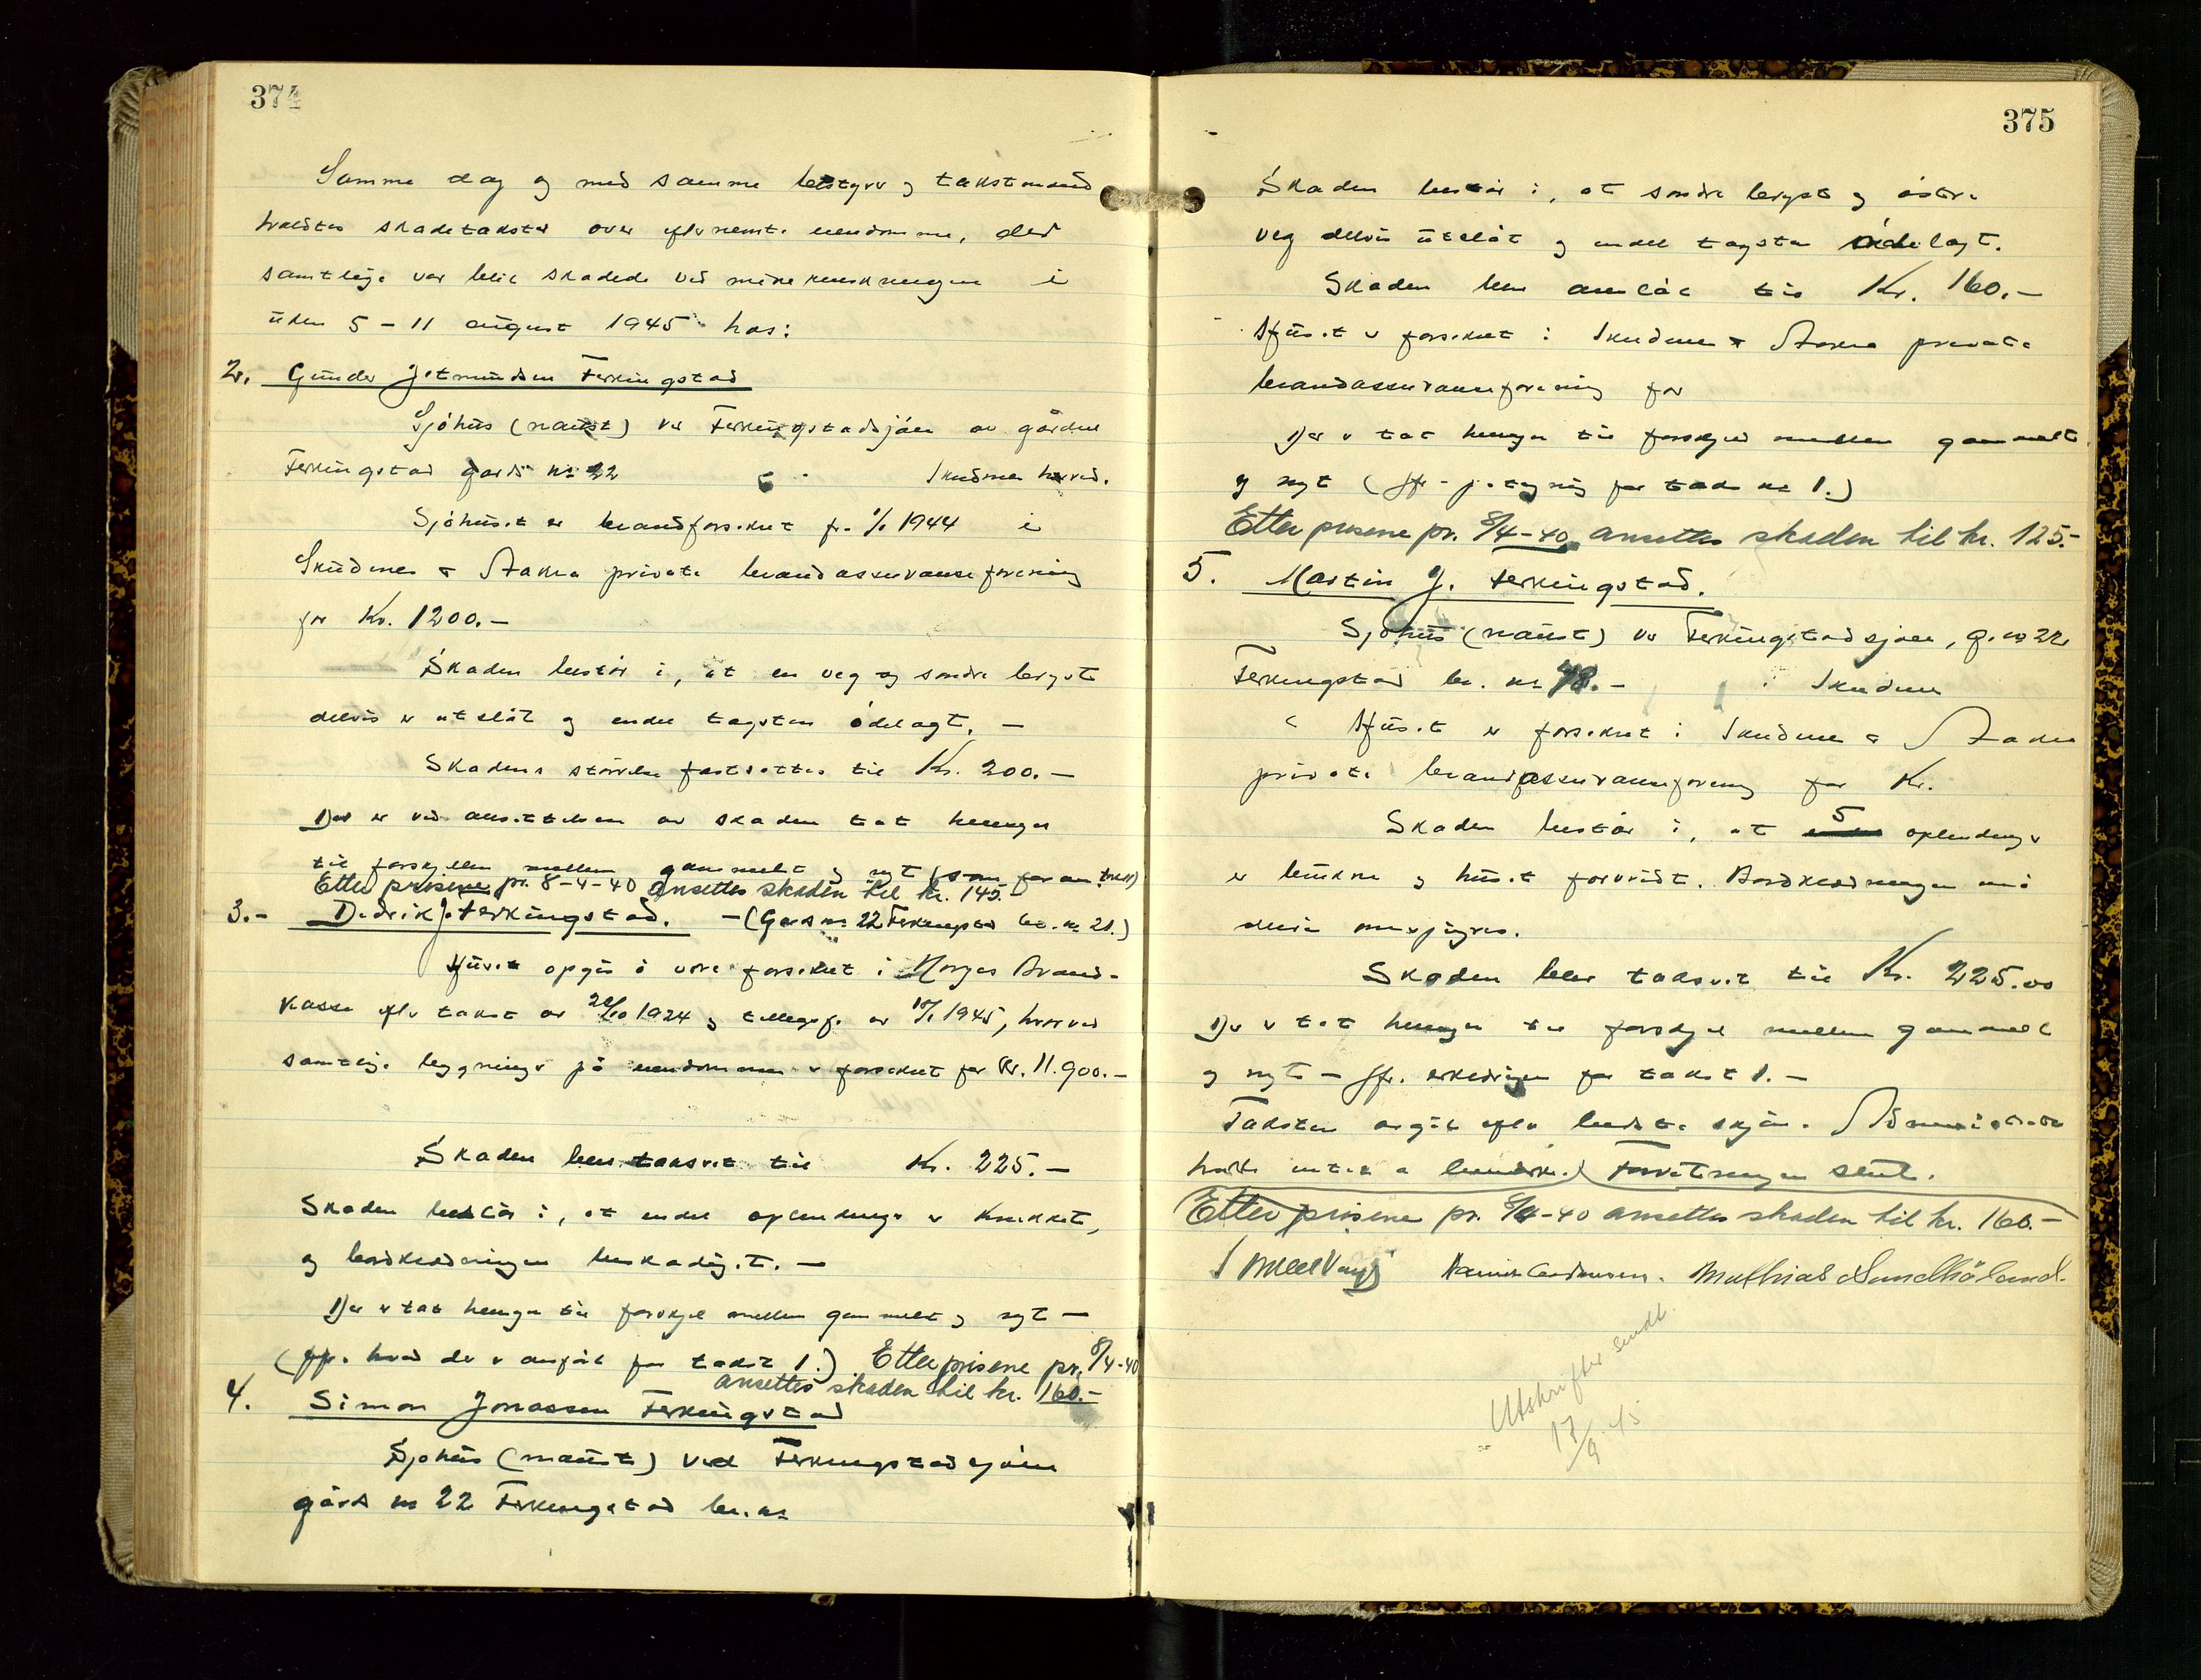 374
Samme dag og med samme bestyrer og takstmænd
holdtes skadetakster over eftr nevnte eiendomme, der
samtlige var blit skadede ved minesprengningen i
uken 5 - 11 august 1945 hos:
2. Gunder Jetmundsen Ferkingstad
Sjöhus (naust) ved Ferkingstadsjöen av gården
Ferkingstad gards nr 22 Skudenes herred.
Sjöhuset er brandforsikret fr. 1/1 1944 i
Skudenes & Stakna private brandassuranseforening
for Kr. 1200.-
Skaden består i, at en veg og söndre bergst
delvis er utslåt og endel tagsten ödelagt. -
Skadens störrelse fastsættes til Kr. 200.-
Der er ved ansettelsen av skaden tat hensyn
til forskjellen mellem gammelt og nyt (som foran takst 1)
Etter prisene pr. 8-4-40 ansettes skaden til kr. 145.-
3.- Didrik J. Ferkingstad. - (Gards nr 22 Ferkingstad br. nr 21.)
Huset opgis å være forsikret i Norges Brand-
kasse eftr takst av 20/10 1924 og tillegsf. av 18/1 1945, hvorved
samtlige bygninger på eiendommen er forsikret for Kr. 11.900.-
Skaden blev taksert til Kr. 225.-
Skaden består i, at endel oplendinger er knækket,
og bordklædningen beskadiget. -
Der er tat hensyn til forskjel mellem gammelt og nyt -
(jfr. hvad der er anfört for takst 1.) Etter prisene pr. 8/4-40
ansettes skaden til kr. 160.-
4. Simon Jonassen Ferkingstad
Sjöhus (naust) ved Ferkingstadsjöen
gårds nr 22 Ferkingstad br. nr
375
Skaden består i, at söndre bergst og östre
veg delvis utslåt og endel tagsten ödelagt.
Skaden blev anslåt til Kr. 160.-
Huset er forsikret i Skudenes & Stakna private
brandassuranseforening for
Der er tat hensyn til forskjel mellem gammelt
og nyt (jfr. for takst nr 1.)
Etter prisene pr. 8/4-40 ansettes skaden til kr. 125.-
5. Martin J. Ferkingstad.
Sjöhus (naust) ved Ferkingstadsjöen, g. nr 22
Ferkingstad br. nr 48.- Skudenes
Huset er forsikret i Skudenes & Stakna
private brandassuranseforening for Kr.
Skaden består i, at 5 oplendinger
er brukne og huset forvridt. Bordklædningen må
delvis omspigres.
Skaden blev taksert til Kr. 225.00
Der er tat hensyn til forskjel mellem gammelt
og nyt - jfr. erklæringen for takst 1. -
Taksten avgit eftr bedste skjön. Administrator
hadde intet å bemerke.) Forretningen slut.
Etter prisene pr. 8/4-40 ansettes skaden til kr. 160.-
Mathias Sundhöland.
Utskrifter sendt
17/9 45